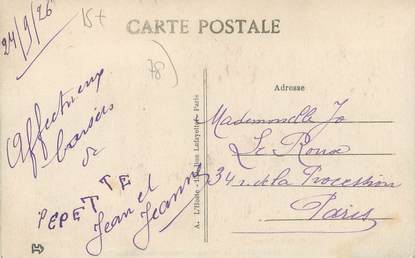 24/9/26
15+
CARTE POSTALE
78)
Adresse
Affectueux
baisers
de
PEPETTE
Jean et
Jeanne
A. L'Hoste - Paris
Mademoiselle Jo
Le Roux
34 r. de la Procession
Paris